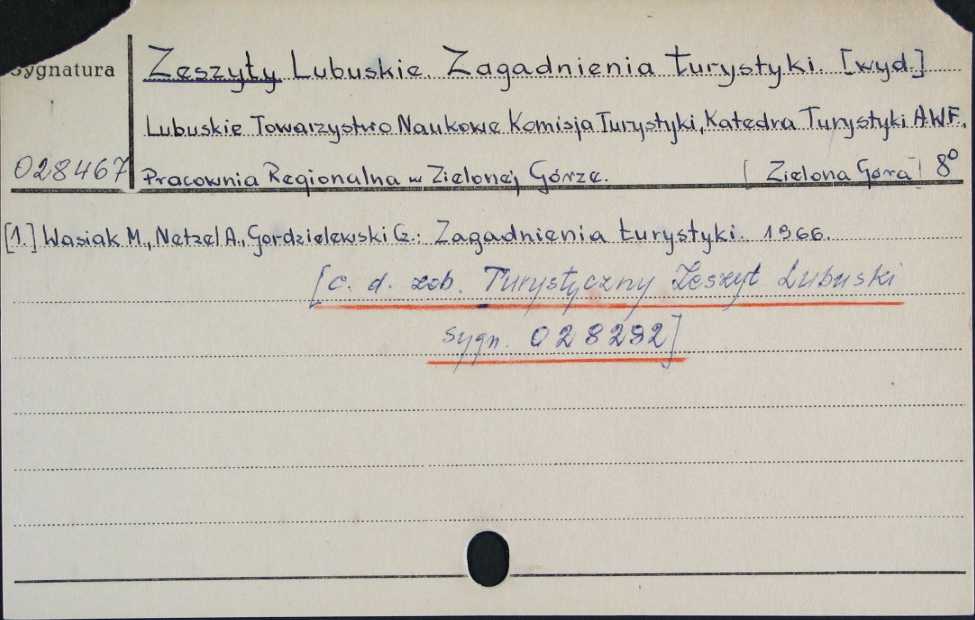 Sygnatura
Zeszyty Lubuskie. Zagadnienia turystyki. [wyd.]
Lubuskie Towarzystwo Naukowe Komisja Turystyki, Katedra Turystyki A.W.F.,
028467 Pracownia Regionalna w Zielonej Górze. Zielona Góra 8°
[1.] Wasiak M., Netzel A., Gordzielewski G.: Zagadnienia turystyki. 1966.
[c. d. zob. Turystyczny Zeszyt Lubuski
sygn. 028292]